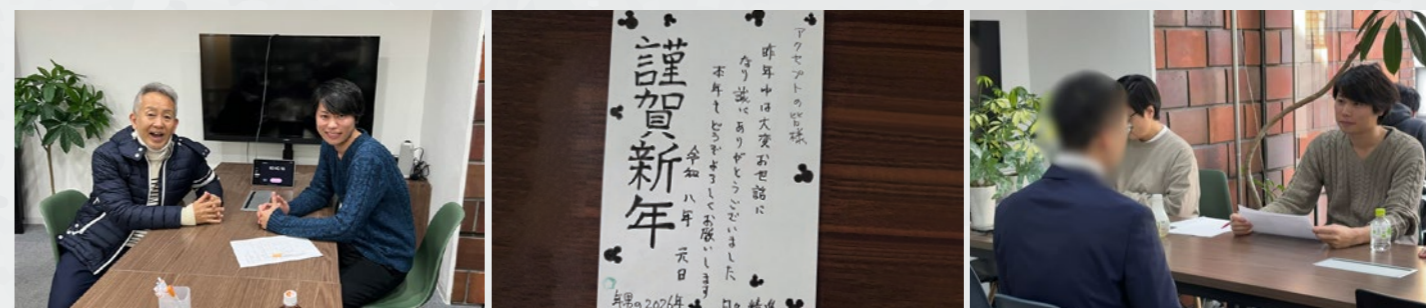 アクセプトの皆様
昨年中は大変お世話に
なり誠にありがとうございました
本年もどうぞよろしくお願いします
令和八年 元日
謹賀新年
年男の2026年